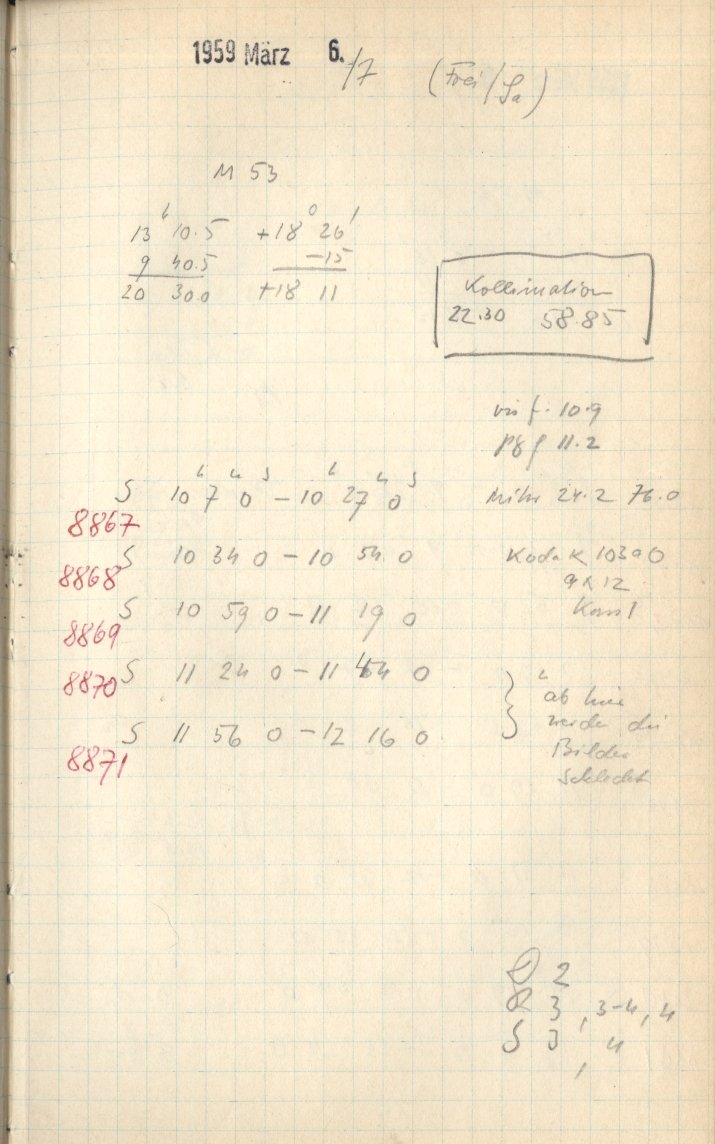 1959 März 6./7 (Frei/Sa)
M 53
13 h 10.5 +18° 26'
9 40.5 -15
20 300 +18 11
Kollimation
22.30 58.85
vis f. 10.9
pg f 11.2
S 10 h 7 m 0 s – 10 h 27 m 0 s
24.2 76.0
8867
S 10 34 0 – 10 54 0
Kodak 103a0
8868
9x12
S 10 59 0 – 11 19 0
8869
S 11 24 0 – 11 44 0
8870
ab hier
werden die
S 11 56 0 – 12 16 0
Bilder
8871
schlecht
D 2
R 3, 3-4, 4
S 3, 4